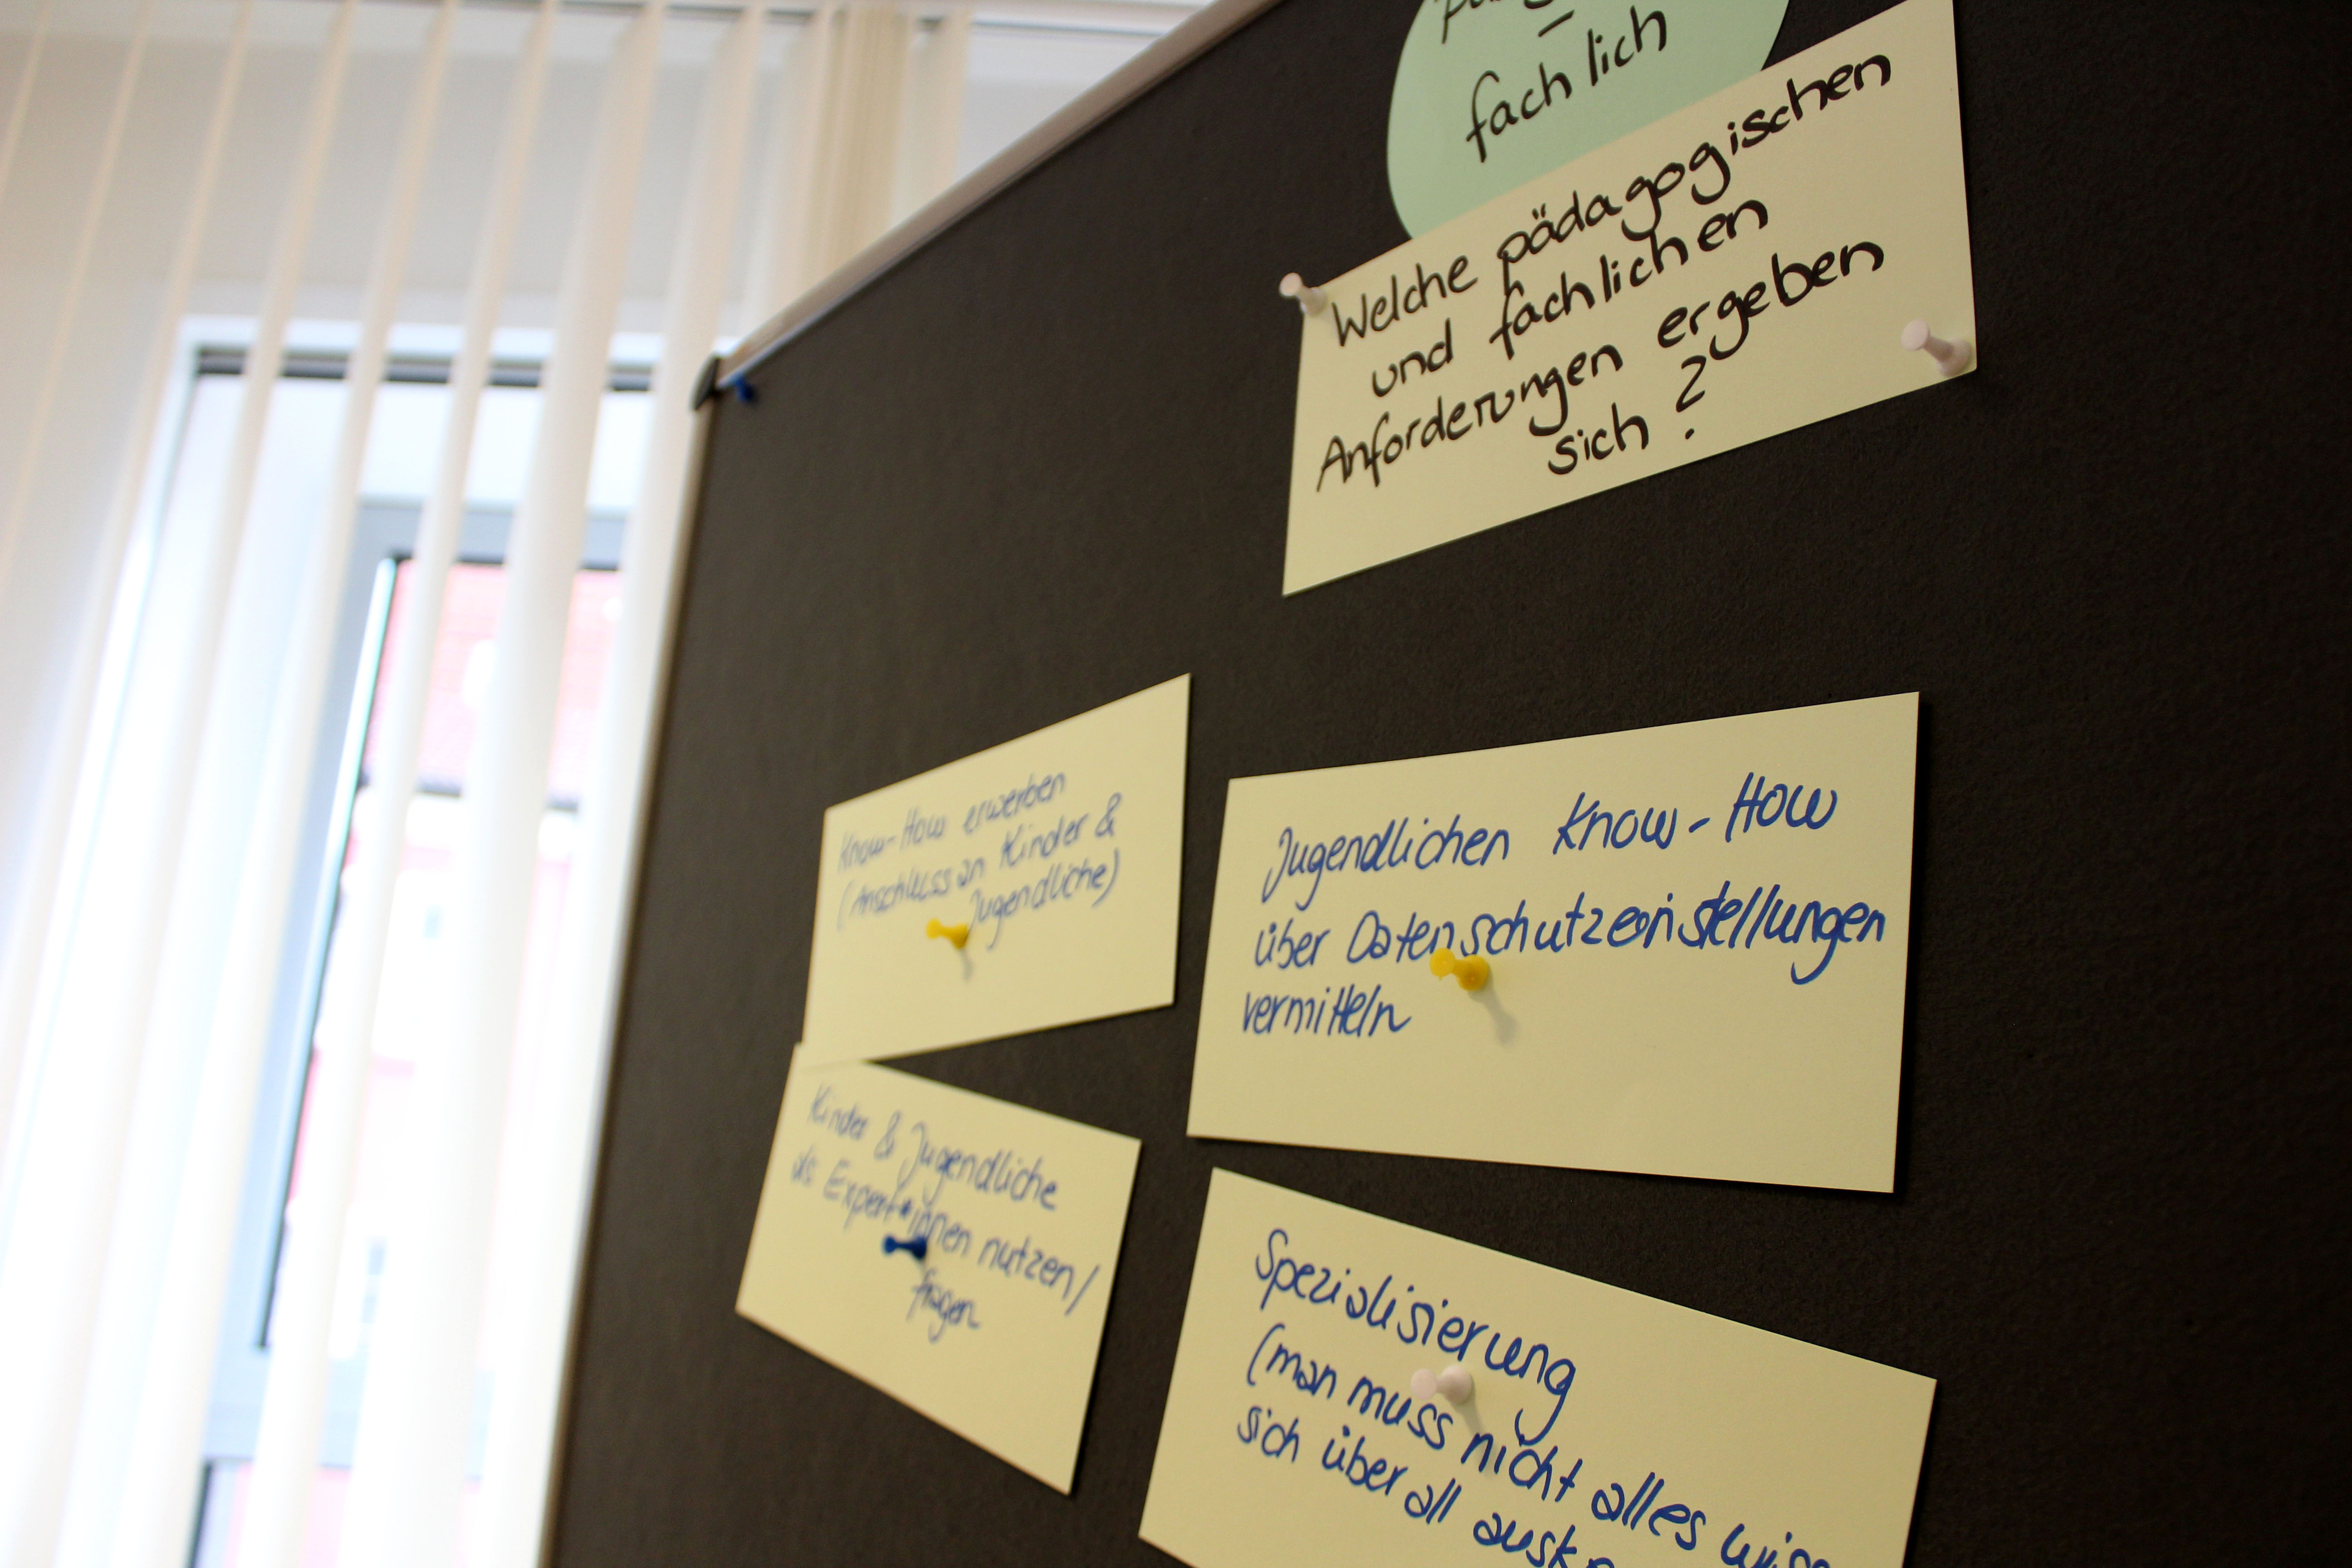 fachlich
Welche pädagogischen
und fachlichen
Anforderungen ergeben
sich ?
Know-How erwerben
(Anschluss an Kinder &
Jugendliche)
Jugendlichen Know-How
über Datenschutzeinstellungen
vermitteln
Kinder & Jugendliche
als Expert*innen nutzen/
fragen
Spezialisierung
(man muss nicht alles
sich überall